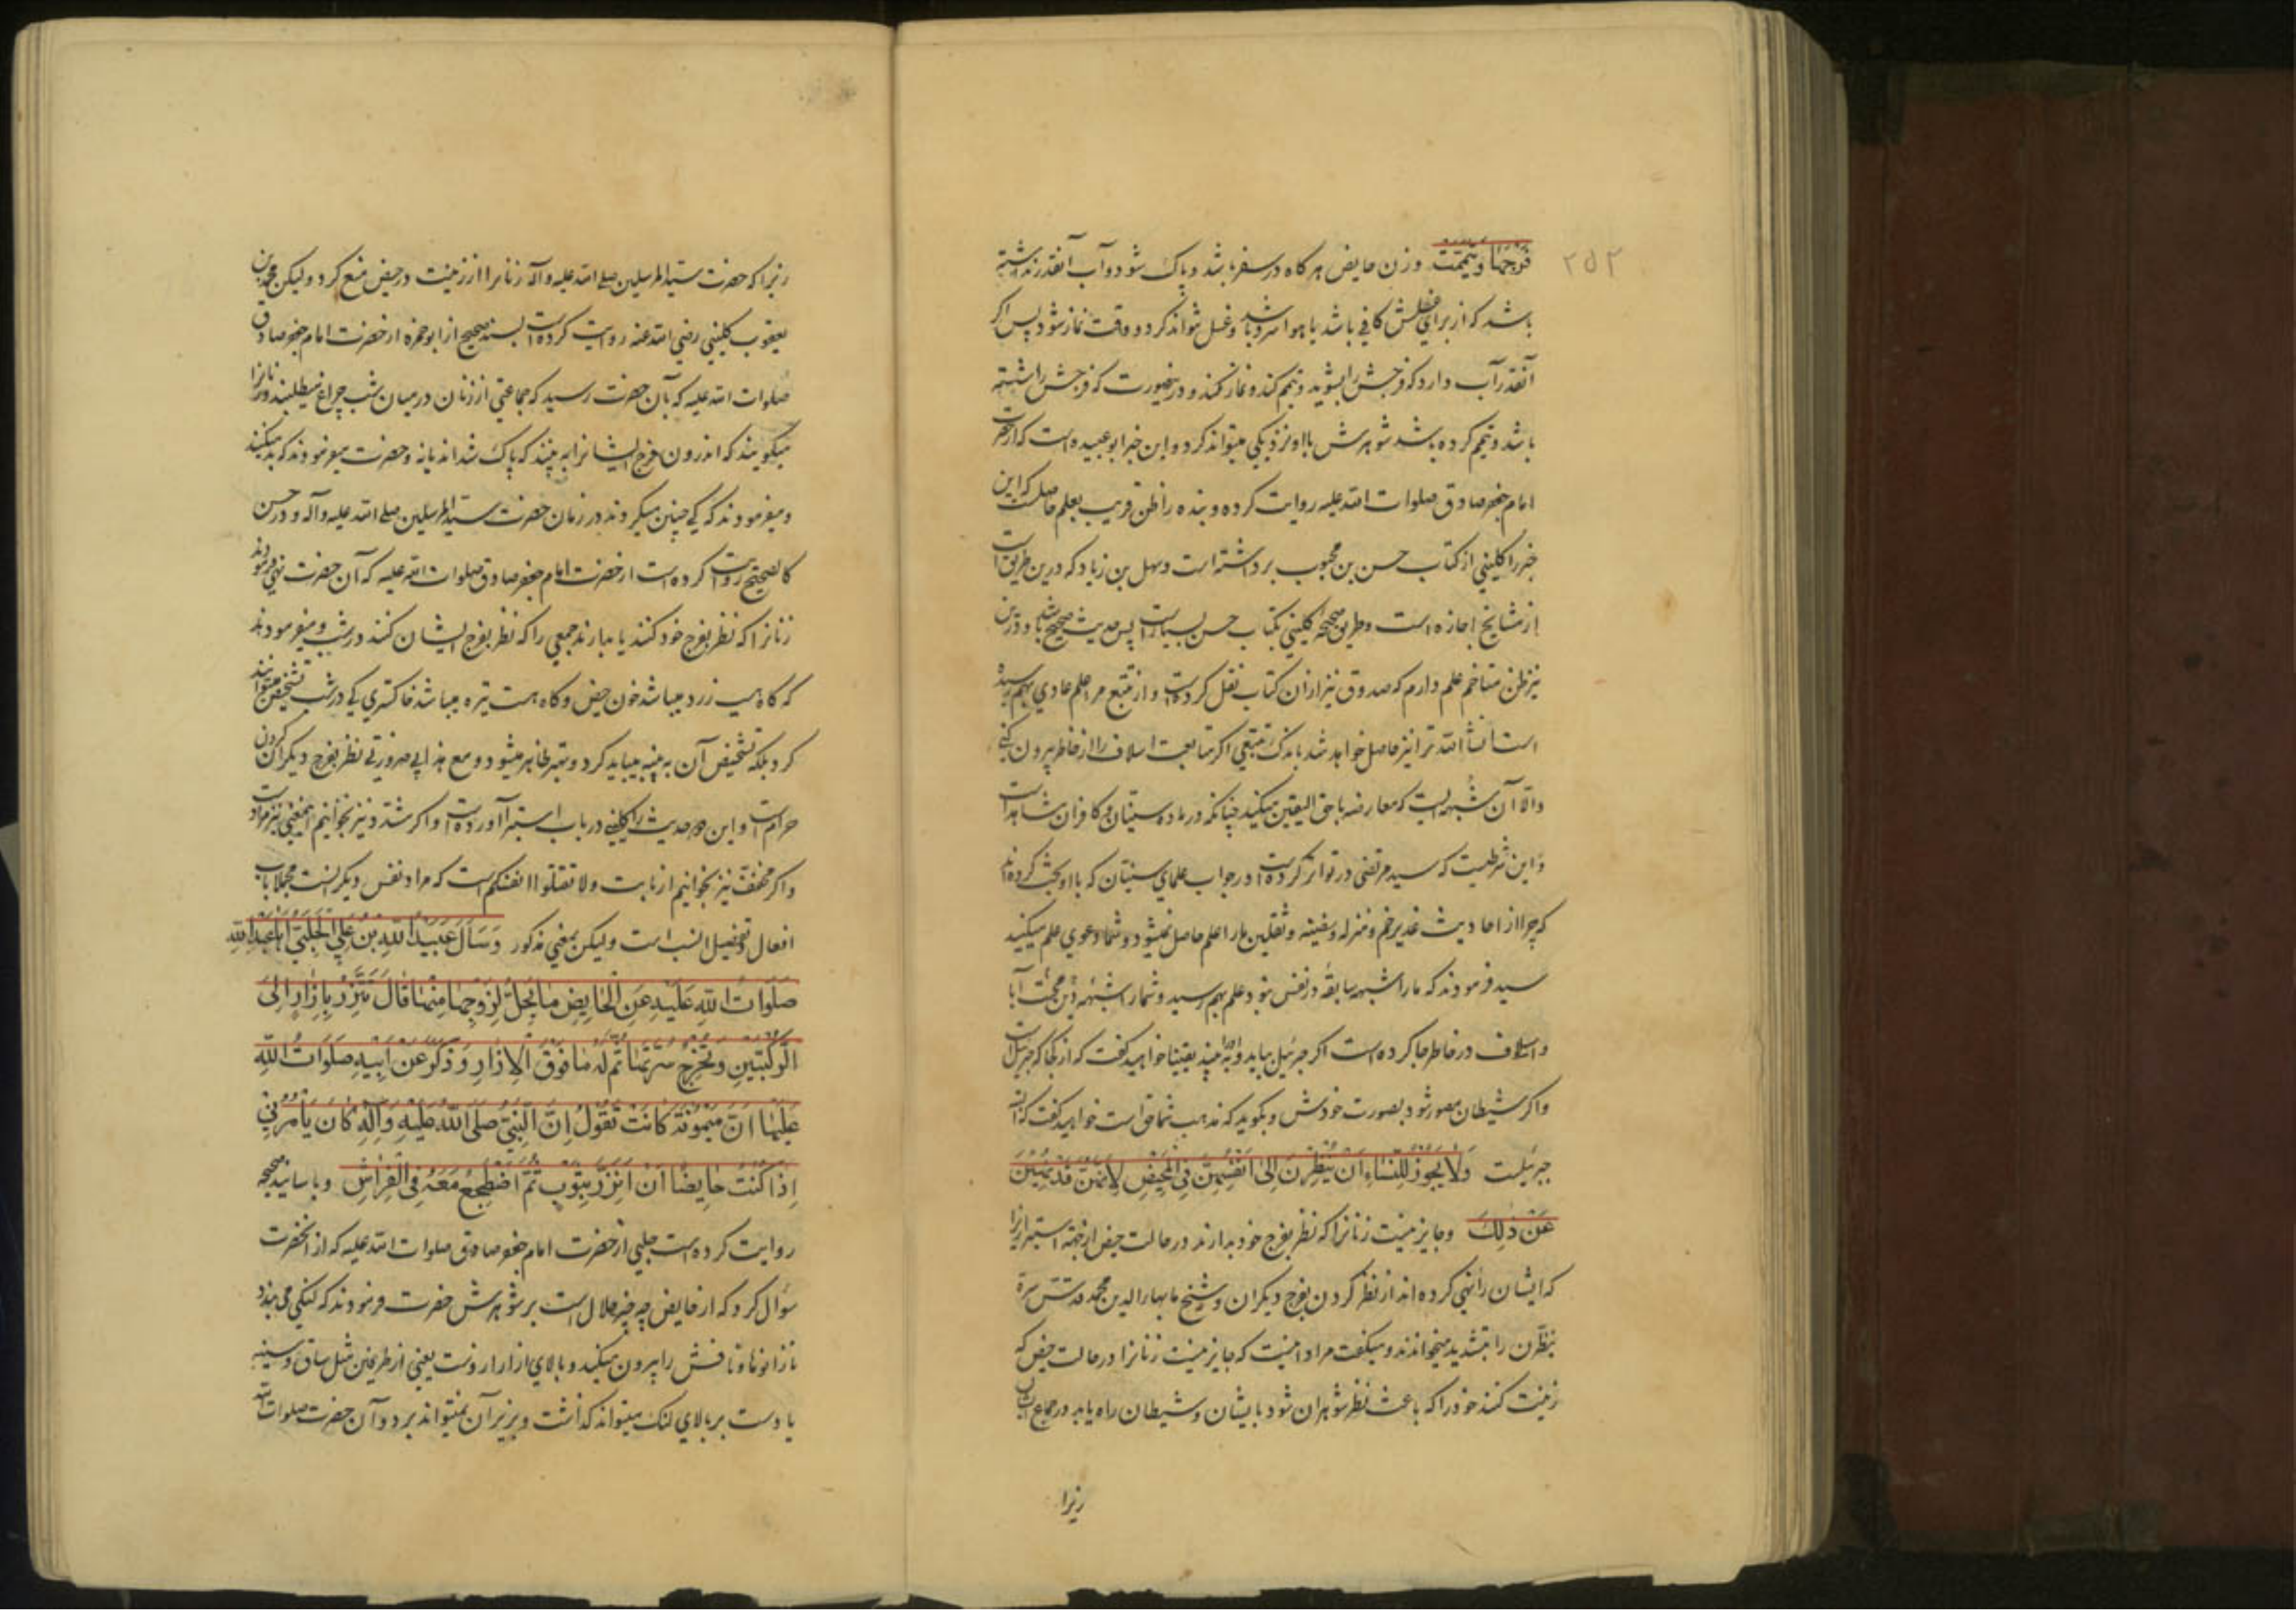 ۲۵۲
فَرْجَهَا وَتَيَمَّمَتْ وزن حایض هرکاه در سفر باشد و پاک شود و آب آنقدر نداشته
باشد که از برای غسلش کافی باشد یا هوا سرد باشد و غسل نتواند کرد و وقت نماز شود پس اکر
آنقدر آب دارد که فرجش را بشوید و تیمم کند و نماز کند و درینصورت که فرجش را شسته
باشد و تیمم کرده باشد شوهرش با او نزدیکی میتواند کرد و این خبر ابو عبیده است که از حضرت
امام جعفر صادق صلوات الله علیه روایت کرده و بنده را ظن قریب بعلم حاصلست که این
خبر را کلینی از کتاب حسن بن محبوب برداشته است و سهل بن زیاد که درین طریق است
از مشایخ اجازه است و طرق صحیحه کلینی بکتاب حسن بسیار است پس حدیث صحیح باشد و درین
نیز ظن متاخم علم دارم که صدوق نیز از آن کتاب نقل کرده است و از تتبع مرا علم عادی بهم رسیده
است انشاء الله ترا نیز حاصل خواهد شد باندک تتبعی اکر متابعت اسلاف را از خاطر بیرون کنی
والّا آن شبهه ایست که معارضه با حق الیقین میکنید چنانکه در ماده سنیان و کافران مشاهد است
و این شرطیست که سید مرتضی در تواتر کرده است در جواب علمای سنیان که با او بحث کرده اند
که چرا از احادیث غدیر خم و منزله و سفینه و ثقلین ما را علم حاصل نمیشود و شما دعوی علم میکنید
سید فرمودند که ما را شبهه سابقه در نفس نبود علم بهم رسید و شما را شبهه دین محبت آبا
و اسلاف در خاطر جا کرده است اکر جبرئیل بیاید و او را به بیند یقینا خواهید کفت که از کجا که جبرئیل است
و اکر شیطان مصور شود بصورت خودش و بکوید که مذهب شما حق است خواهید کفت که این
جبرئیلست وَلَا يَجُوزُ لِلنِّسَاءِ اَنْ يَنْظُرْنَ اِلَى اَنْفُسِهِنَّ فِى الْمَحِيضِ لِاَنَّهُنَّ قَدْ نُهِينَ
عَنْ ذٰلِكَ وجایز نیست زنانرا که نظر بفرج خود بدارند در حالت حیض از جهة استبرا زیرا
که ایشان را نهی کرده اند از نظر کردن بفرج دیکران و شیخ ما بهاء الدین محمد قدس سره
ینظّرن را بتشدید میخواندند و میکفت مراد اینست که جایز نیست زنانرا در حالت حیض که
زینت کنند خود را که باعث نظر شوهران شود بایشان و شیطان راه یابد در جماع ایشان
زیرا
زیرا که حضرت سید المرسلین صلی الله علیه و آله زنانرا از زینت در حیض منع کرد و لیکن محمد بن
یعقوب کلینی رضی الله عنه روایت کرده است بسند صحیح از ابو حمزه از حضرت امام جعفر صادق
صلوات الله علیه که بآن حضرت رسید که جماعتی از زنان در میان شب چراغ میطلبند و زنانرا
میکویند که اندرون فرج ایشانرا به بینند که پاک شده اند یا نه و حضرت میفرمودند که بد میکنند
و میفرمودند که کی چنین میکردند در زمان حضرت سید المرسلین صلی الله علیه و آله و در حسن
کالصحیح روایت کرده است از حضرت امام جعفر صادق صلوات الله علیه که آن حضرت نهی فرمودند
زنانرا که نظر بفرج خود کنند یا بدارند جمعی را که نظر بفرج ایشان کنند در شب و میفرمودند
که کاه هست زرد میباشد خون حیض و کاه هست تیره میباشد خاکستری کی در شب تشخیص میتوانند
کرد بلکه تشخیص آن به پنبه میباید کرد و بنظر ظاهر میشود و مع هذا بی ضرورتی نظر بفرج دیکران کردن
حرام است و این دو حدیث را کلینی در باب استبرا آورده است و اکر مشدد نیز بخوانیم اینمعنی نیز مراد است
و اکر مخفف نیز بخوانیم از بابت ولا تقتلوا انفسکم است که مراد نفس دیکر است مجملا باب
افعال و تفعیل انسب است و لیکن بمعنی مذکور وَسَأَلَ عُبَيْدُ اللهِ بْنُ عَلِيٍّ الْحَلَبِيُّ اَبَا عَبْدِ اللهِ
صَلَوَاتُ اللهِ عَلَيْهِ عَنِ الْحَايِضِ مَا يَحِلُّ لِزَوْجِهَا مِنْهَا قَالَ تَتَّزِرُ بِاِزَارٍ اِلَى
الرُّكْبَتَيْنِ وَتُخْرِجُ سُرَّتَهَا ثُمَّ لَهُ مَا فَوْقَ الْاِزَارِ وَذَكَرَ عَنْ اَبِيهِ صَلَوَاتُ اللهِ
عَلَيْهِمَا اَنَّ مَيْمُونَةَ كَانَتْ تَقُولُ اِنَّ النَّبِيَّ صَلَّى اللهُ عَلَيْهِ وَآلِهِ كَانَ يَأْمُرُنِي
اِذَا كُنْتُ حَايِضًا اَنْ اَتَّزِرَ بِثَوْبٍ ثُمَّ اَضْطَجِعُ مَعَهُ فِي الْفِرَاشِ وباسانید صحیحه
روایت کرده است حلبی از حضرت امام جعفر صادق صلوات الله علیه که از آنحضرت
سؤال کرد که از حایض چه چیز حلال است بر شوهرش حضرت فرمودند که لنکی می بندد
تا زانوها و نافش را بیرون میکند و بالای ازار از اوست یعنی از طرفین مثل ساق و سینه
یا دست بر بالای لنک میتواند کذاشت و بزیر آن نمیتواند برد و آن حضرت صلوات الله